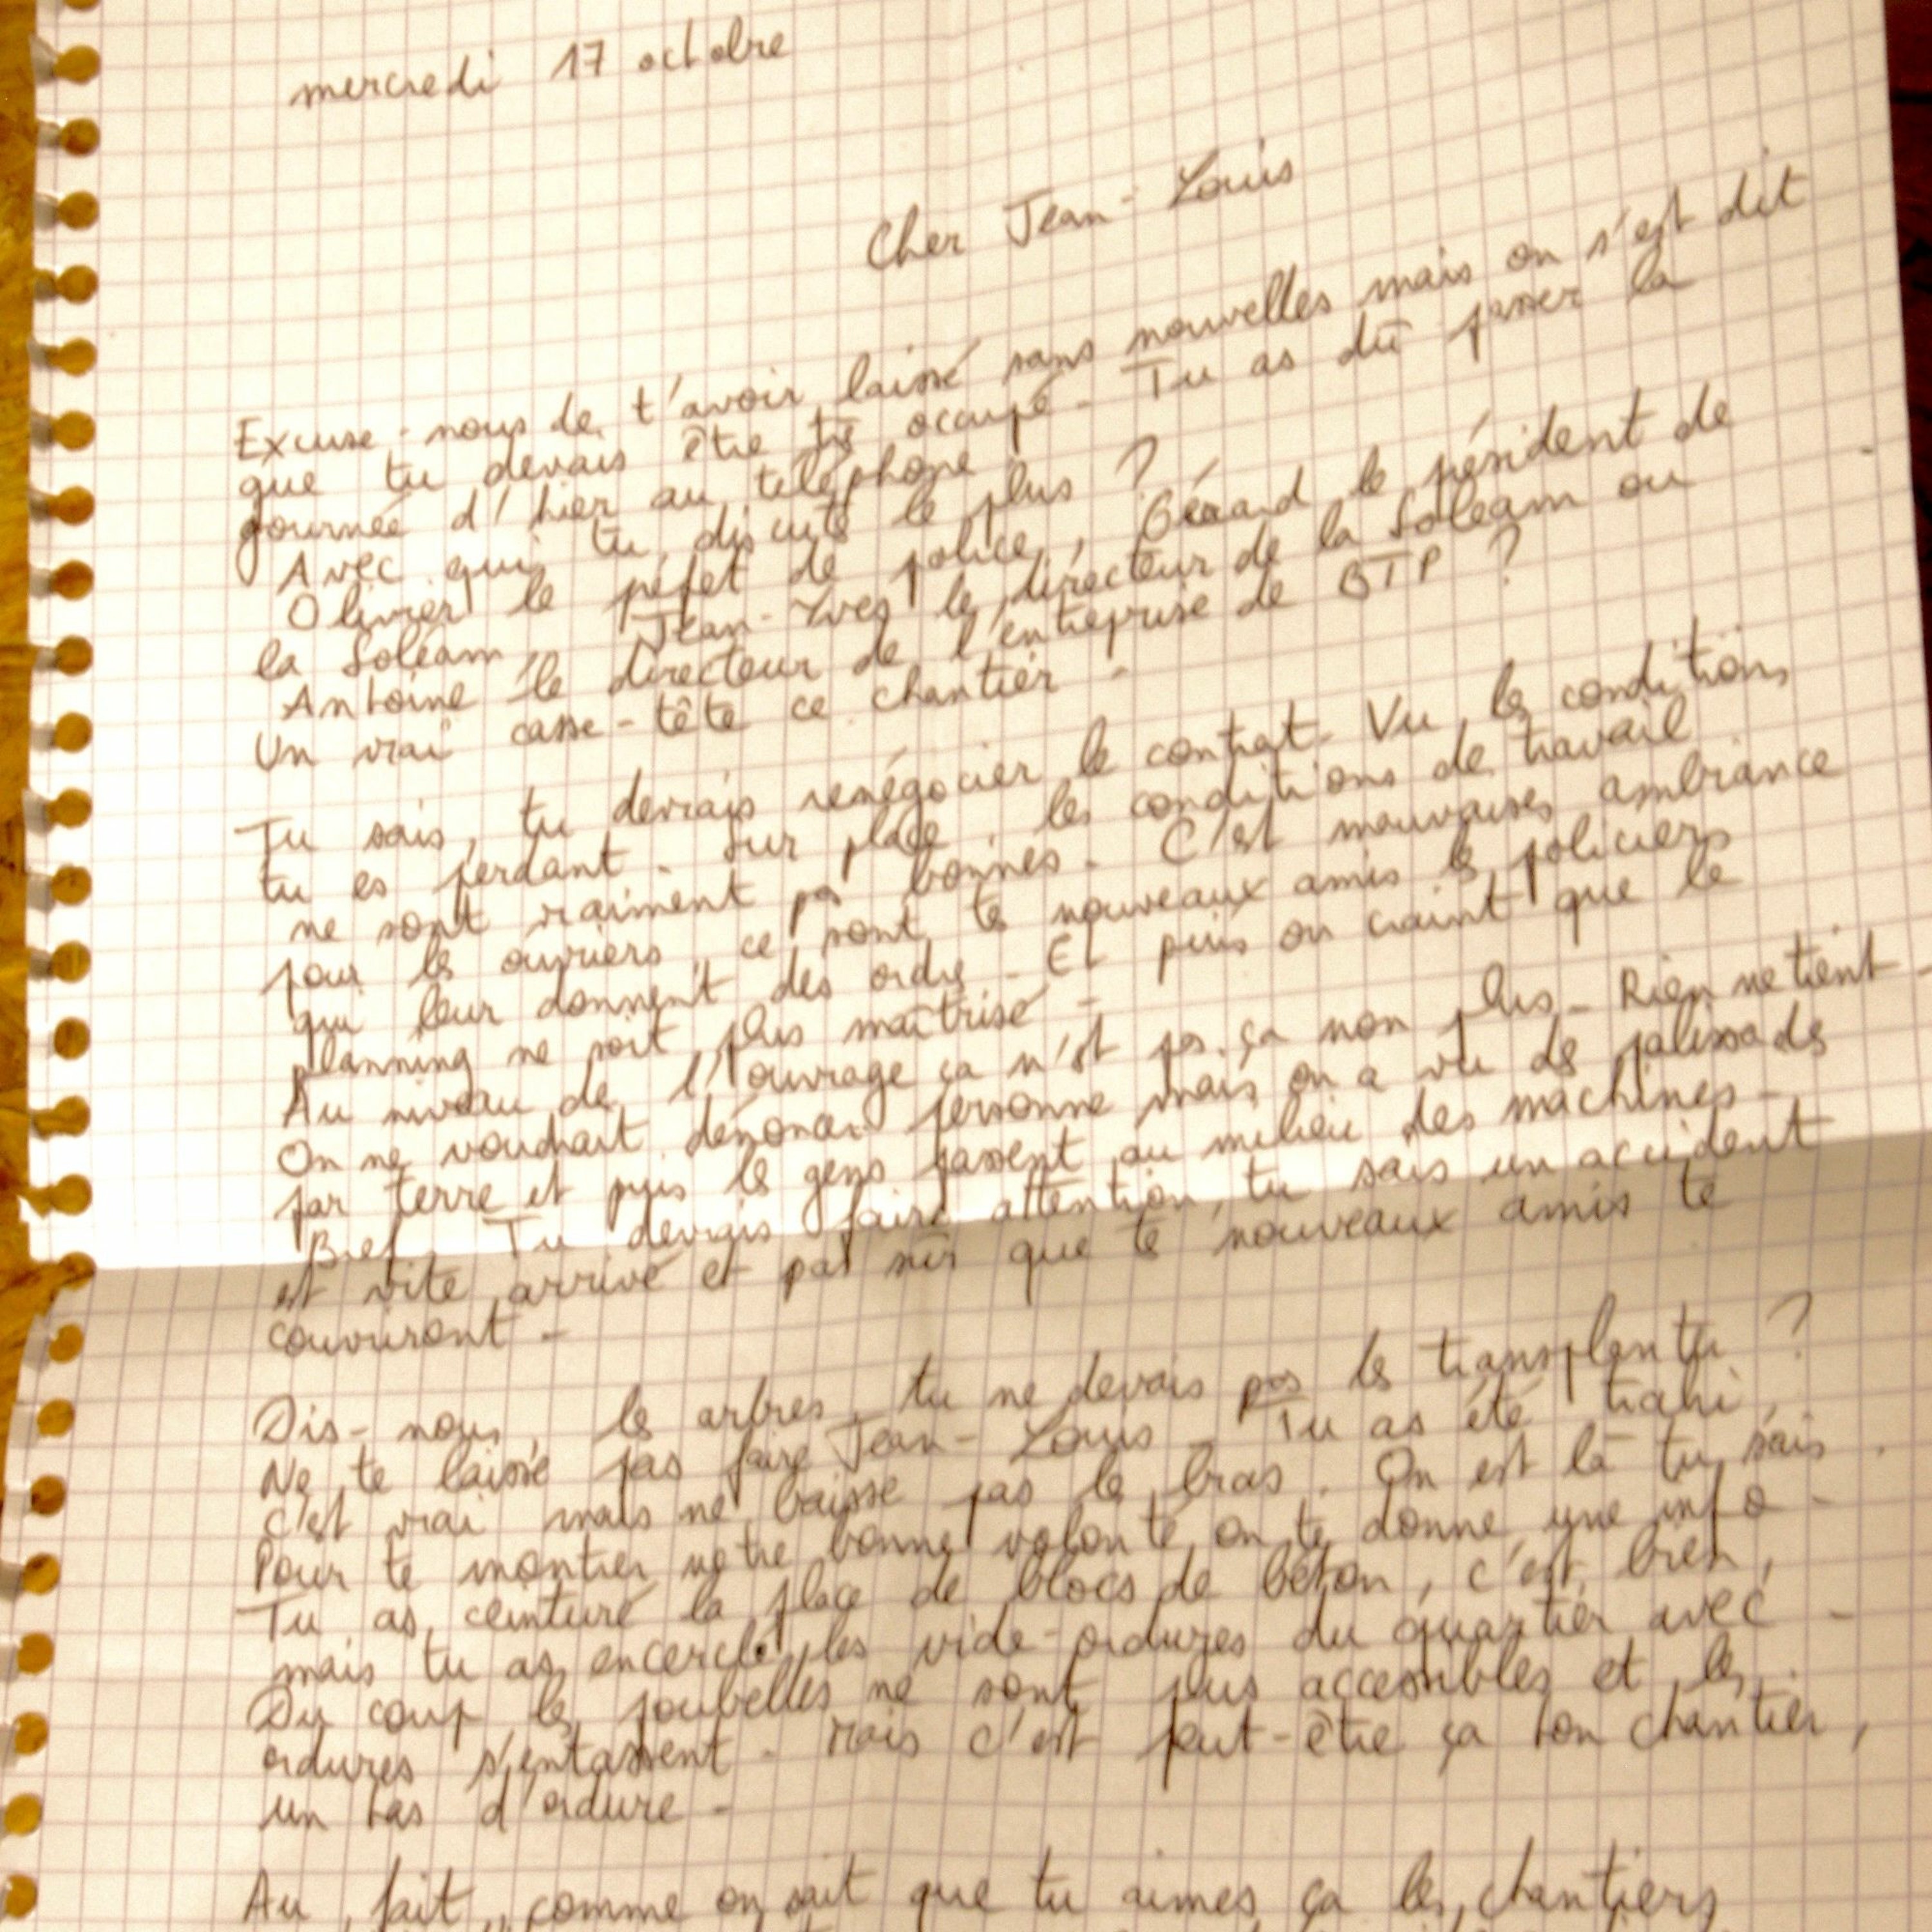 mercredi 17 octobre
Cher Jean-Louis
Excuse-nous de t'avoir laissé sans nouvelles mais on s'est dit
que tu devais être très occupé - Tu as dû passer la
journée d'hier au téléphone
Avec qui tu discute le plus ?
Olivier le préfet de police, Gérard le président de
la Soléam, Jean-Yves le directeur de la Soléam ou
Antoine le directeur de l'entreprise de BTP ?
Un vrai casse-tête ce chantier -
Tu sais, tu devrais renégocier le contrat - Vu les conditions,
tu es perdant - Sur place, les conditions de travail
ne sont vraiment pas bonnes - C'est mauvaises ambiance
pour les ouvriers, ce sont tes nouveaux amis les policiers
qui leur donnent des ordres - Et puis on craint que le
planning ne soit plus maîtrisé -
Au niveau de l'ouvrage ça n'est pas ça non plus - Rien ne tient -
On ne voudrait dénoncer personne mais on a vu des palissades
par terre et puis les gens passent au milieu des machines -
Bref, Tu devrais faire attention, tu sais un accident
est vite arrivé et pas sûr que tes nouveaux amis te
couvriront -
Dis-nous, les arbres, tu ne devais pas les transplanter ?
Ne te laisse pas faire Jean-Louis - Tu as été trahi,
c'est vrai mais ne baisse pas les bras. On est là tu sais.
Pour te montrer notre bonne volonté, on te donne une info -
Tu as ceinturé la place de blocs de béton, c'est bien,
mais tu as encerclé les vide-ordures du quartier avec -
Du coup les poubelles ne sont plus accessibles et les
ordures s'entassent - Mais c'est peut-être ça ton chantier,
un tas d'ordure -
Au fait, comme on sait que tu aimes ça les chantiers